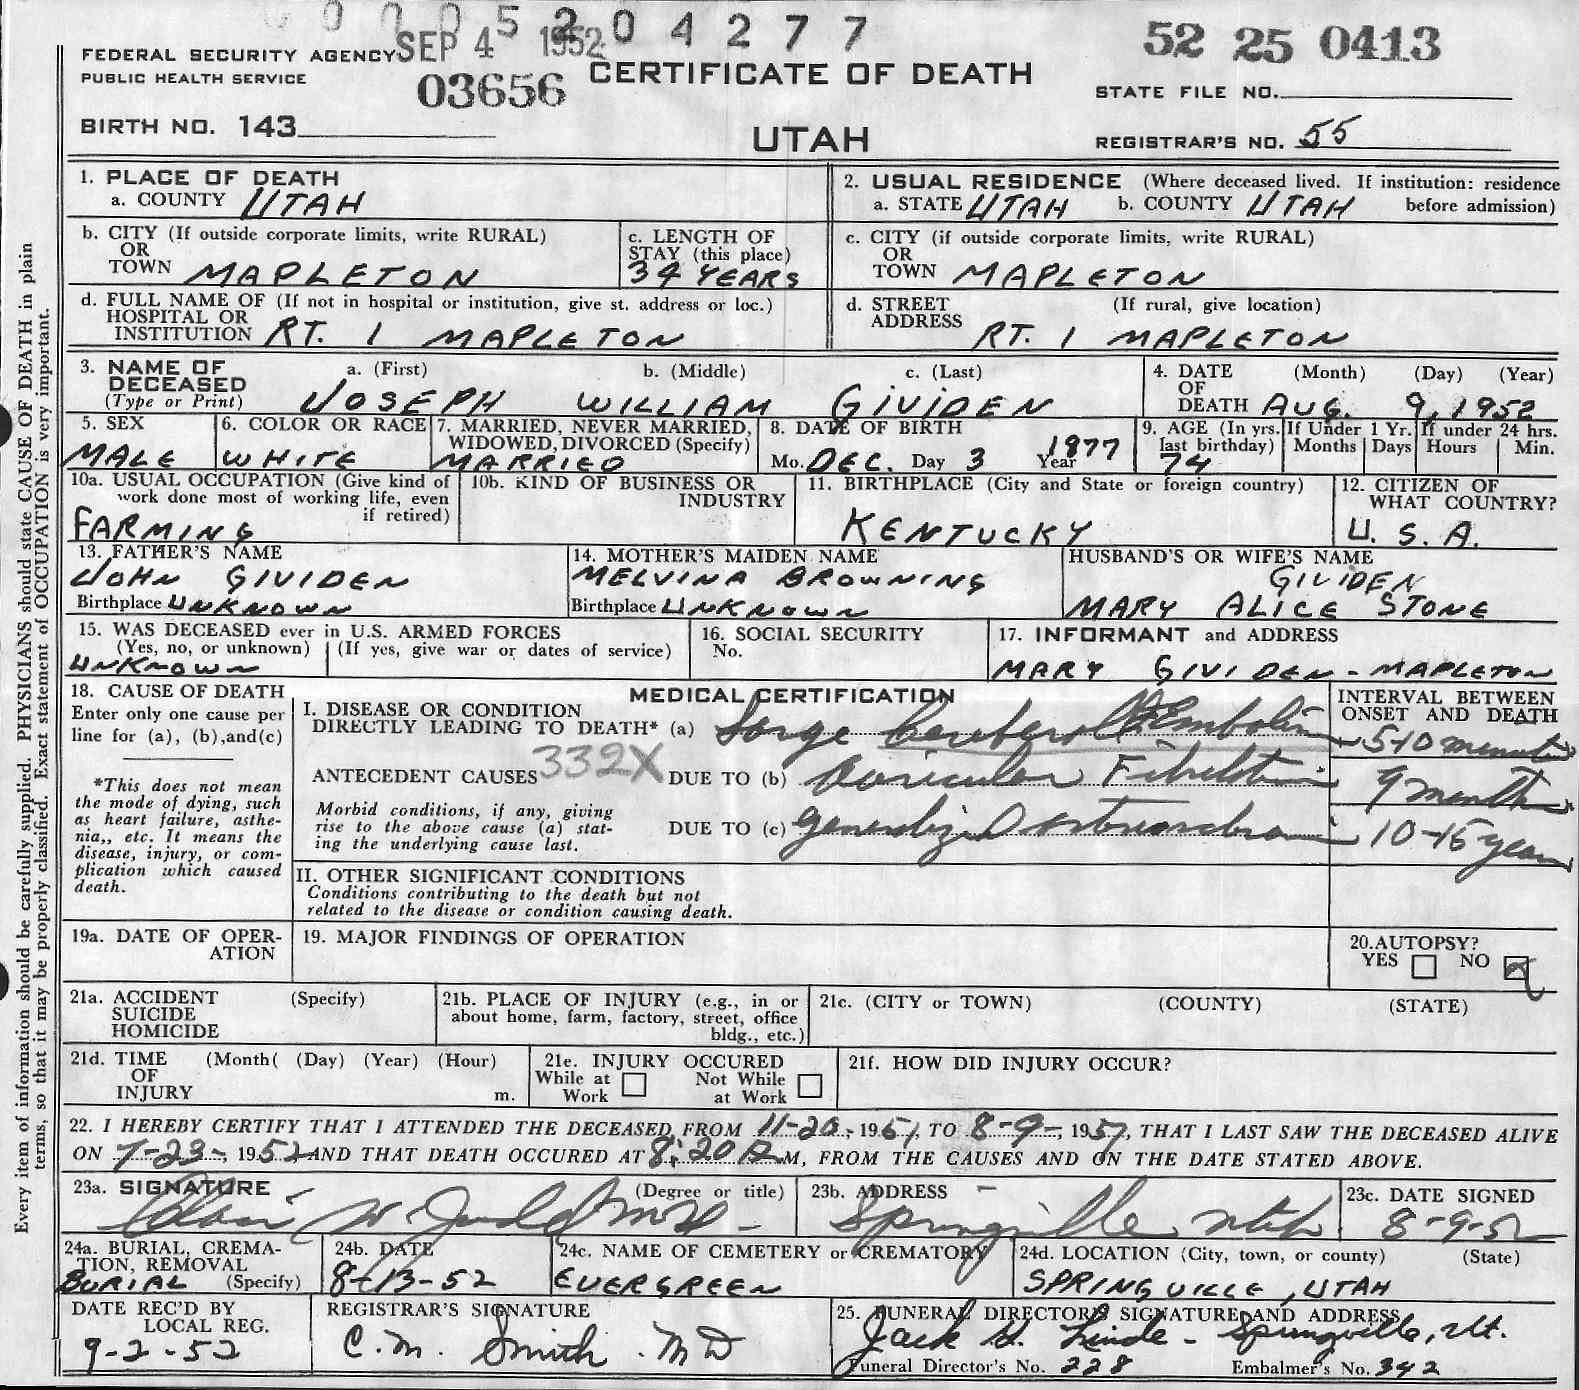 0 0 0 5 2 0 4 2 7 7
SEP 4 1952
52 25 0413
FEDERAL SECURITY AGENCY
PUBLIC HEALTH SERVICE
03656
CERTIFICATE OF DEATH
STATE FILE NO.
BIRTH NO. 143
UTAH
REGISTRAR'S NO. 55
1. PLACE OF DEATH
a. COUNTY UTAH
2. USUAL RESIDENCE (Where deceased lived. If institution: residence
a. STATE UTAH b. COUNTY UTAH before admission)
b. CITY (If outside corporate limits, write RURAL)
OR
TOWN MAPLETON
c. LENGTH OF
STAY (this place)
34 YEARS
c. CITY (if outside corporate limits, write RURAL)
OR
TOWN MAPLETON
d. FULL NAME OF (If not in hospital or institution, give st. address or loc.)
HOSPITAL OR
INSTITUTION RT. 1 MAPLETON
d. STREET (If rural, give location)
ADDRESS RT. 1 MAPLETON
3. NAME OF a. (First) b. (Middle) c. (Last)
DECEASED
(Type or Print) JOSEPH WILLIAM GIVIDEN
4. DATE (Month) (Day) (Year)
OF
DEATH AUG. 9, 1952
5. SEX
MALE
6. COLOR OR RACE
WHITE
7. MARRIED, NEVER MARRIED,
WIDOWED, DIVORCED (Specify)
MARRIED
8. DATE OF BIRTH
Mo. DEC. Day 3 Year 1877
9. AGE (In yrs.
last birthday)
74
If Under 1 Yr.
Months Days
If under 24 hrs.
Hours Min.
10a. USUAL OCCUPATION (Give kind of
work done most of working life, even
if retired)
FARMING
10b. KIND OF BUSINESS OR
INDUSTRY
11. BIRTHPLACE (City and State or foreign country)
KENTUCKY
12. CITIZEN OF
WHAT COUNTRY?
U. S. A.
13. FATHER'S NAME
JOHN GIVIDEN
Birthplace UNKNOWN
14. MOTHER'S MAIDEN NAME
MELVINA BROWNING
Birthplace UNKNOWN
HUSBAND'S OR WIFE'S NAME
GIVIDEN
MARY ALICE STONE
15. WAS DECEASED ever in U.S. ARMED FORCES
(Yes, no, or unknown) (If yes, give war or dates of service)
UNKNOWN
16. SOCIAL SECURITY
No.
17. INFORMANT and ADDRESS
MARY GIVIDEN - MAPLETON
18. CAUSE OF DEATH
Enter only one cause per
line for (a), (b), and (c)
*This does not mean
the mode of dying, such
as heart failure, asthe-
nia,, etc. It means the
disease, injury, or com-
plication which caused
death.
MEDICAL CERTIFICATION
I. DISEASE OR CONDITION
DIRECTLY LEADING TO DEATH* (a) Large Cerebral Embolism
332X
ANTECEDENT CAUSES DUE TO (b) Auricular Fibrillation
Morbid conditions, if any, giving
rise to the above cause (a) stat-
ing the underlying cause last.
DUE TO (c) Generalized
INTERVAL BETWEEN
ONSET AND DEATH
5-10 minutes
9 months
10-15 years
II. OTHER SIGNIFICANT CONDITIONS
Conditions contributing to the death but not
related to the disease or condition causing death.
19a. DATE OF OPER-
ATION
19. MAJOR FINDINGS OF OPERATION
20. AUTOPSY?
YES NO
21a. ACCIDENT (Specify)
SUICIDE
HOMICIDE
21b. PLACE OF INJURY (e.g., in or
about home, farm, factory, street, office
bldg., etc.)
21c. (CITY or TOWN) (COUNTY) (STATE)
21d. TIME (Month( (Day) (Year) (Hour)
OF
INJURY m.
21e. INJURY OCCURED
While at Not While
Work at Work
21f. HOW DID INJURY OCCUR?
22. I HEREBY CERTIFY THAT I ATTENDED THE DECEASED FROM 11-20-, 1951, TO 8-9-, 195, THAT I LAST SAW THE DECEASED ALIVE
ON 7-23-, 1952 AND THAT DEATH OCCURED AT 8:20 M, FROM THE CAUSES AND ON THE DATE STATED ABOVE.
23a. SIGNATURE (Degree or title)
W. Judd MD
23b. ADDRESS
Springville Utah
23c. DATE SIGNED
8-9-52
24a. BURIAL, CREMA-
TION, REMOVAL
BURIAL (Specify)
24b. DATE
8-13-52
24c. NAME OF CEMETERY or CREMATORY
EVERGREEN
24d. LOCATION (City, town, or county) (State)
SPRINGVILLE, UTAH
DATE REC'D BY
LOCAL REG.
9-2-52
REGISTRAR'S SIGNATURE
C. M. Smith MD
25. FUNERAL DIRECTOR'S SIGNATURE AND ADDRESS
Jack H. - Springville, Ut.
Funeral Director's No. 228 Embalmer's No. 342
Every item of information should be carefully supplied. PHYSICIANS should state CAUSE OF DEATH in plain
terms, so that it may be properly classified. Exact statement of OCCUPATION is very important.